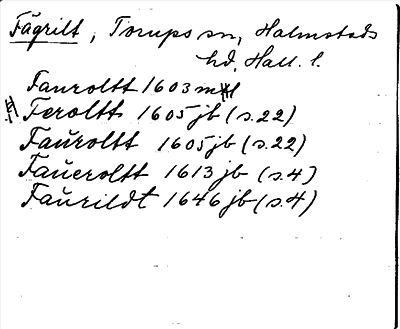 Fägrilt, Torups sn, Halmstads
hd, Hall. l.
Fauroltt 1603 ml
Feroltt 1605 jb (s. 22)
Faŭroltt 1605 jb (s. 22)
Faŭeroltt 1613 jb (s. 4)
Faŭrildt 1646 jb (s. 4)